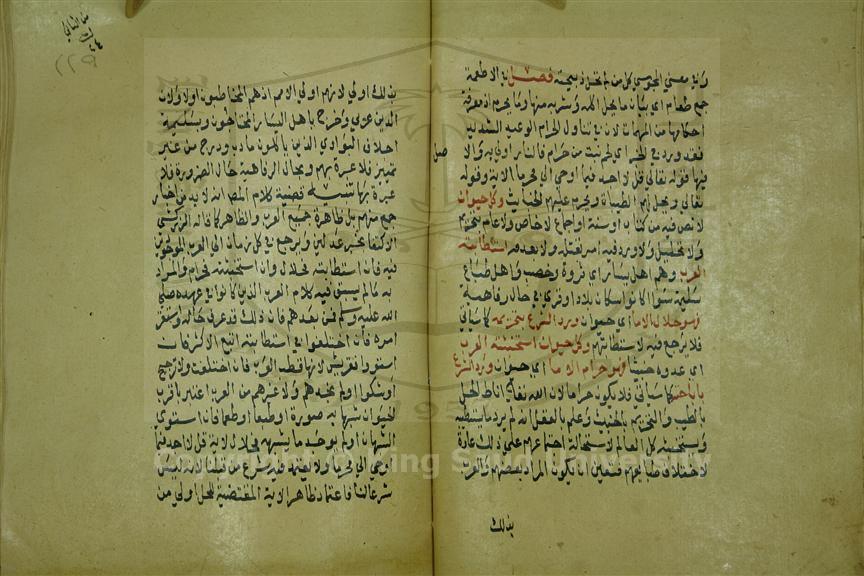 وفي معنى المجوسي كل من لم تحل ذبيحته فصل في الاطعمة
جمع طعام اي بيان ما يحل اكله وشربه منها وما يحرم اذ معرفة
احكامها من المهمات لان في تناول الحرام الوعيد الشديد
فقد ورد في الخبر اي لحم نبت من حرام فالنار اولى به والاصل
فيها قوله تعالى قل لا اجد فيما اوحي الي محرما الاية وقوله
تعالى ويحل لهم الطيبات ويحرم عليهم الخبائث وكل حيوان
لا نص فيه من كتاب او سنة او اجماع لا خاص ولا عام بتحريم
ولا تحليل ولا ورد فيه امر بقتله ولا بعدمه استطابته
العرب وهم اهل يسار اي ثروة وخصب واهل طباع
سليمة سوا كانوا سكان بلاد او قرى في حال رفاهية
فهو حلال الا ما اي حيوان ورد الشرع بتحريمه كما سياتي
فلا يرجع فيه لاستطابتهم وكل حيوان استخبثته العرب
اي عدوه خبيثا فهو حرام الا ما اي حيوان ورد الشرع
باباحته كما سياتي فلا يكون حراما لان الله تعالى اناط الحل
بالطيب والتحريم بالخبيث وعلم بالعقل انه لم يرد ما يستطيبه
ويستخبثه كل العالم لاستحالة اجتماعهم على ذلك عادة
لاختلاف طبايعهم فتعين ان يكون المراد بعضهم والعرب
بذلك
بذلك اولى لانهم اولى الامم اذ هم المخاطبون اولا ولان
الدين عربي وخرج باهل اليسار المحتاجون وبسليمة
اجلاف البوادي الذين ياكلون ما دب ودرج من غير
تمييز فلا عبرة بهم وبحال الرفاهية حال الضرورة فلا
عبرة بها تنبيه قضية كلام المص انه لا بد من اخبار
جمع منهم بل ظاهره جميع العرب والظاهر كما قاله الزركشي
الاكتفا بخبر عدلين ويرجع في كل زمان الى العرب الموجودين
فيه فان استطابته فحلال وان استخبثته فحرام والمراد
به ما لم يسبق فيه كلام العرب الذين كانوا في عهده صلى
الله عليه وسلم فمن بعدهم فان ذلك قد عرف حاله واستقر
امره فان اختلفوا في استطابته اتبع الاكثر فان
استووا فقريش لانها قطب العرب فان اختلفت ولا ترجيح
او شكوا او لم نجدهم ولا غيرهم من العرب اعتبر باقرب
الحيوان شبها به صورة او طبعا او طعما فان استوى
الشبهان او لم يوجد ما يشبهه فحلال لاية قل لا اجد فيما
اوحي الي محرما ولا يعتمد فيه شرع من قبلنا لانه ليس
شرعا لنا فاعتماد ظاهر الاية المقتضية للحل اولى من